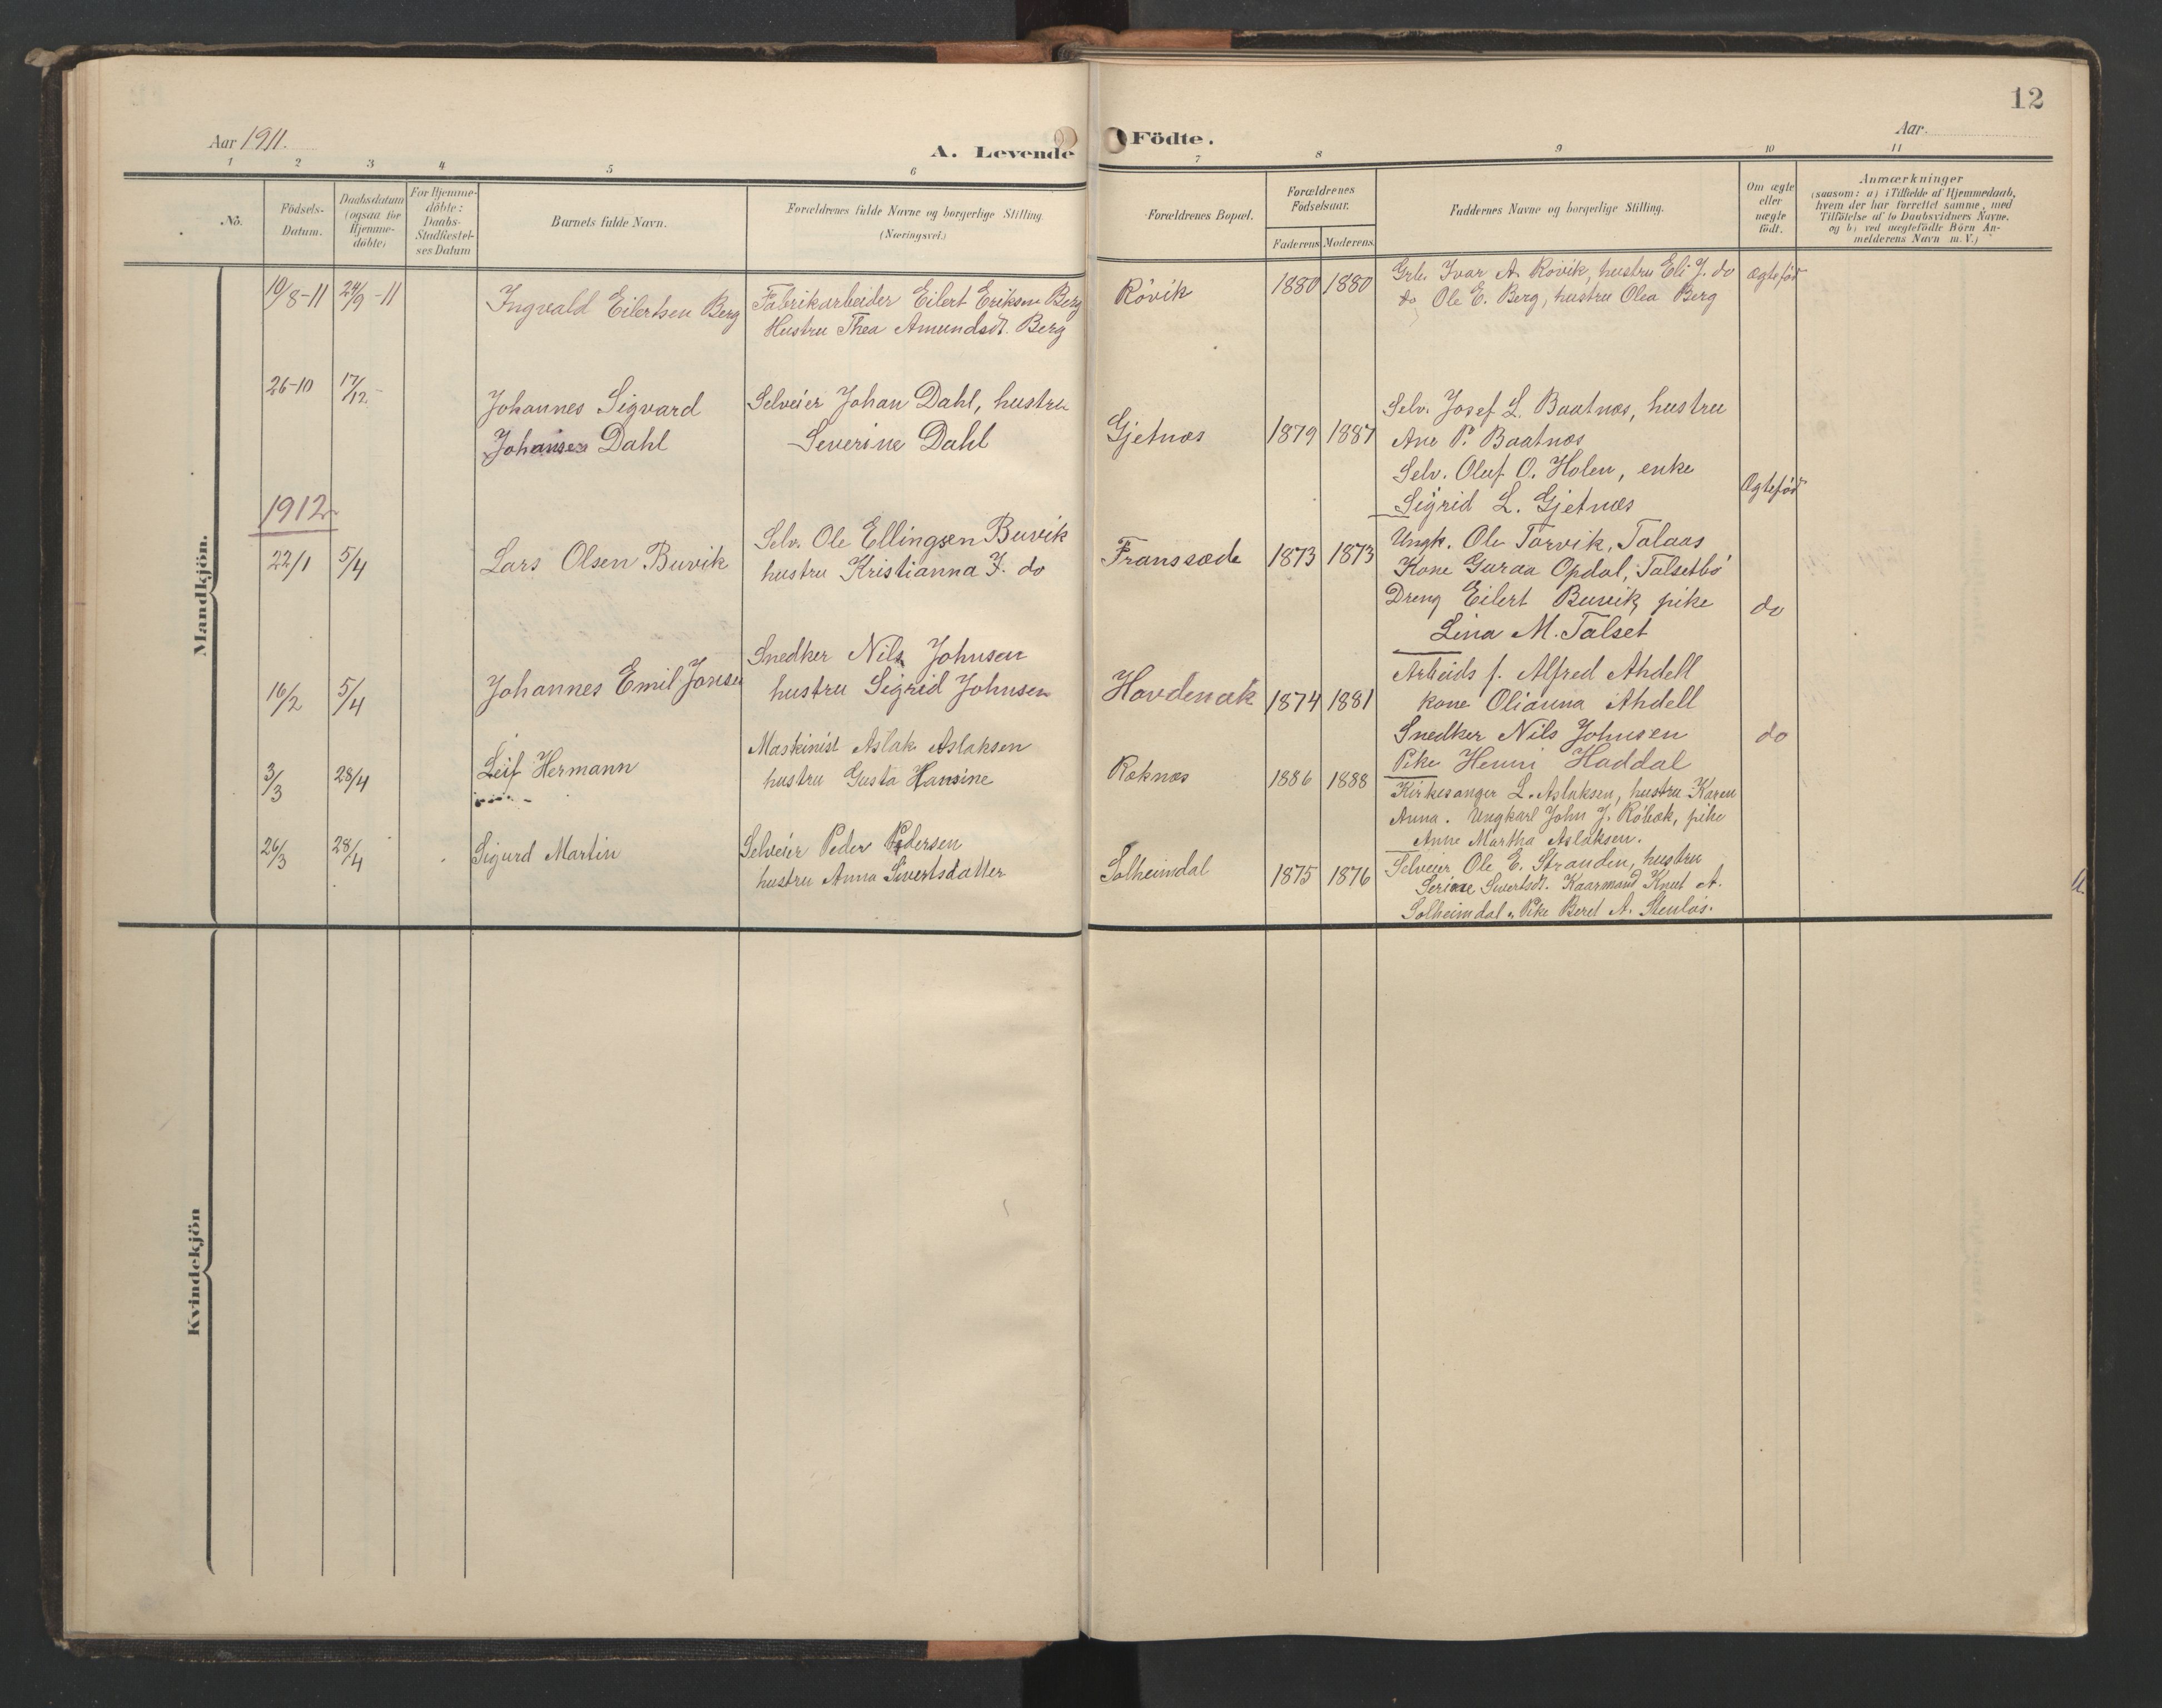 12
Aar 1911.
A. Levende
Födte.
Aar.
1 2 3 4 5 6 7 8 9 10 11
No.
Födsels-
Datum.
Daabsdatum
(ogsaa for
Hjemme-
döbte)
For Hjemme-
döbte:
Daabs-
Stadfæstel-
ses Datum
Barnets fulde Navn.
Forældrenes fulde Navne og borgerlige Stilling
(Næringsvei.)
Forældrenes Bopæl.
Forældrenes
Födselsaar.
Faderens Moderens
Faddernes Navne og borgerlige Stilling.
Om ægte
eller
uægte
födt.
Anmærkninger
(saasom: a) i Tilfælde af Hjemmedaab,
hvem der har forrettet samme, med
Tilföielse af to Daabsvidners Navne.
og b) ved uægtefödte Börn An-
melderens Navn m. V.)
Mandkjön.
10/8-11 24/9-11
Ingvald Eilertsen Berg
Fabrikarbeider Eilert Eriksen Berg
Hustru Thea Amundsdt. Berg
Rövik
1880 1880
Grb. Ivar A. Rövik, hustru Eli J. do
do Ole E. Berg, hustru Olea Berg
Ægtefød
26-10 17/12
Johannes Sigvard
Johansen Dahl
Selveier Johan Dahl, hustru
Severine Dahl
Gjetnæs
1879 1887
Selv. Josef L. Baatnæs, hustru
Ane P. Baatnæs
Selv. Oluf O. Holen, enke
Sigrid L. Gjetnæs
Ægtefød
1912
22/1 5/4
Lars Olsen Buvik
Selv. Ole Ellingsen Buvik
hustru Kristianna I. do
Franssæde
1873 1873
Ungk. Ole Torvik, Talaas
Kone Guraa Opdal, Talsetbö
Dreng Eilert Buvik, pike
Lina M. Talset
do
16/2 5/4
Johannes Emil Jonsen
Snedker Nils Johnsen
hustru Sigrid Johnsen
Havdenak
1874 1881
Arbeids f. Alfred Ahdell
kone Olianna Ahdell
Snedker Nils Johnsen
Pike Henni Haddal
do
3/3 28/4
Leif Hermann
Maskinist Aslak Aslaksen
hustru Gusta Hansine
Røknæs
1886 1888
Kirkesanger L. Aslaksen, hustru Karen
Anna. Ungkarl John J. Röbæk, pike
Anne Martha Aslaksen.
26/3 28/4
Sigurd Martin
Selveier Peder Pedersen
hustru Anna Sivertsdatter
Solheimdal
1875 1876
Selveier Ole E. Stranden, hustru
Serine Sivertsdt. Kaarmand Knut A.
Solheimdal, Pike Beret A. Stenlös.
Kvindekjön